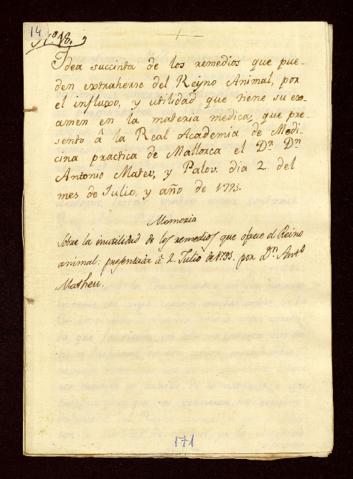 14
Nº 18.
Idea succinta de los remedios que pue-
den extraherse del Reyno Animal, por
el influxo, y utilidad que tiene su exa-
men en la materia medica; que pre-
sentó â la Real Academia de Medi-
cina practica de Mallorca el Dr. Dn.
Antonio Mateu, y Palou. dia 2. del
mes de Julio, y año de 1793.
Memoria
Sobre la inutilidad de los remedios que ofrece el Reino
animal: presentada â 2. Julio de 1793. por Dn. Antº
Matheu.
171